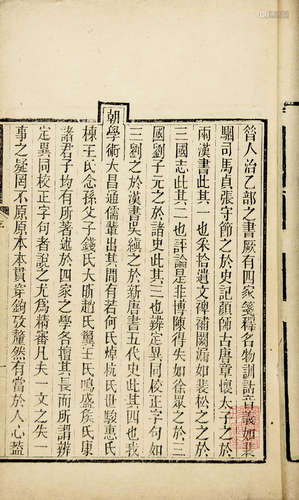 昔人治乙部之書厥有四家箋釋名物訓詁音義如裴
駰司馬貞張守節之於史記顏師古唐章懷太子之於
兩漢書此其一也釆拾遺文裨補闕漏如裴松之之於
三國志此其二也評論是非博陳得失如徐眾之於三
國劉子元之於諸史此其三也辨定異同校正字句如
三劉之於漢書吳縝之於新唐書五代史此其四也我
朝學術大昌通儒輩出其間有若何氏焯杭氏世駿惠氏
棟王氏念孫父子錢氏大昕趙氏翼王氏鳴盛矦氏康
諸君子均有所著述於四家之學各擅其長而所謂辨
定異同校正字句者說之尤為精審凡夫一文之失一
事之疑罔不原原本本貫穿鉤攷釐然有當於人心葢